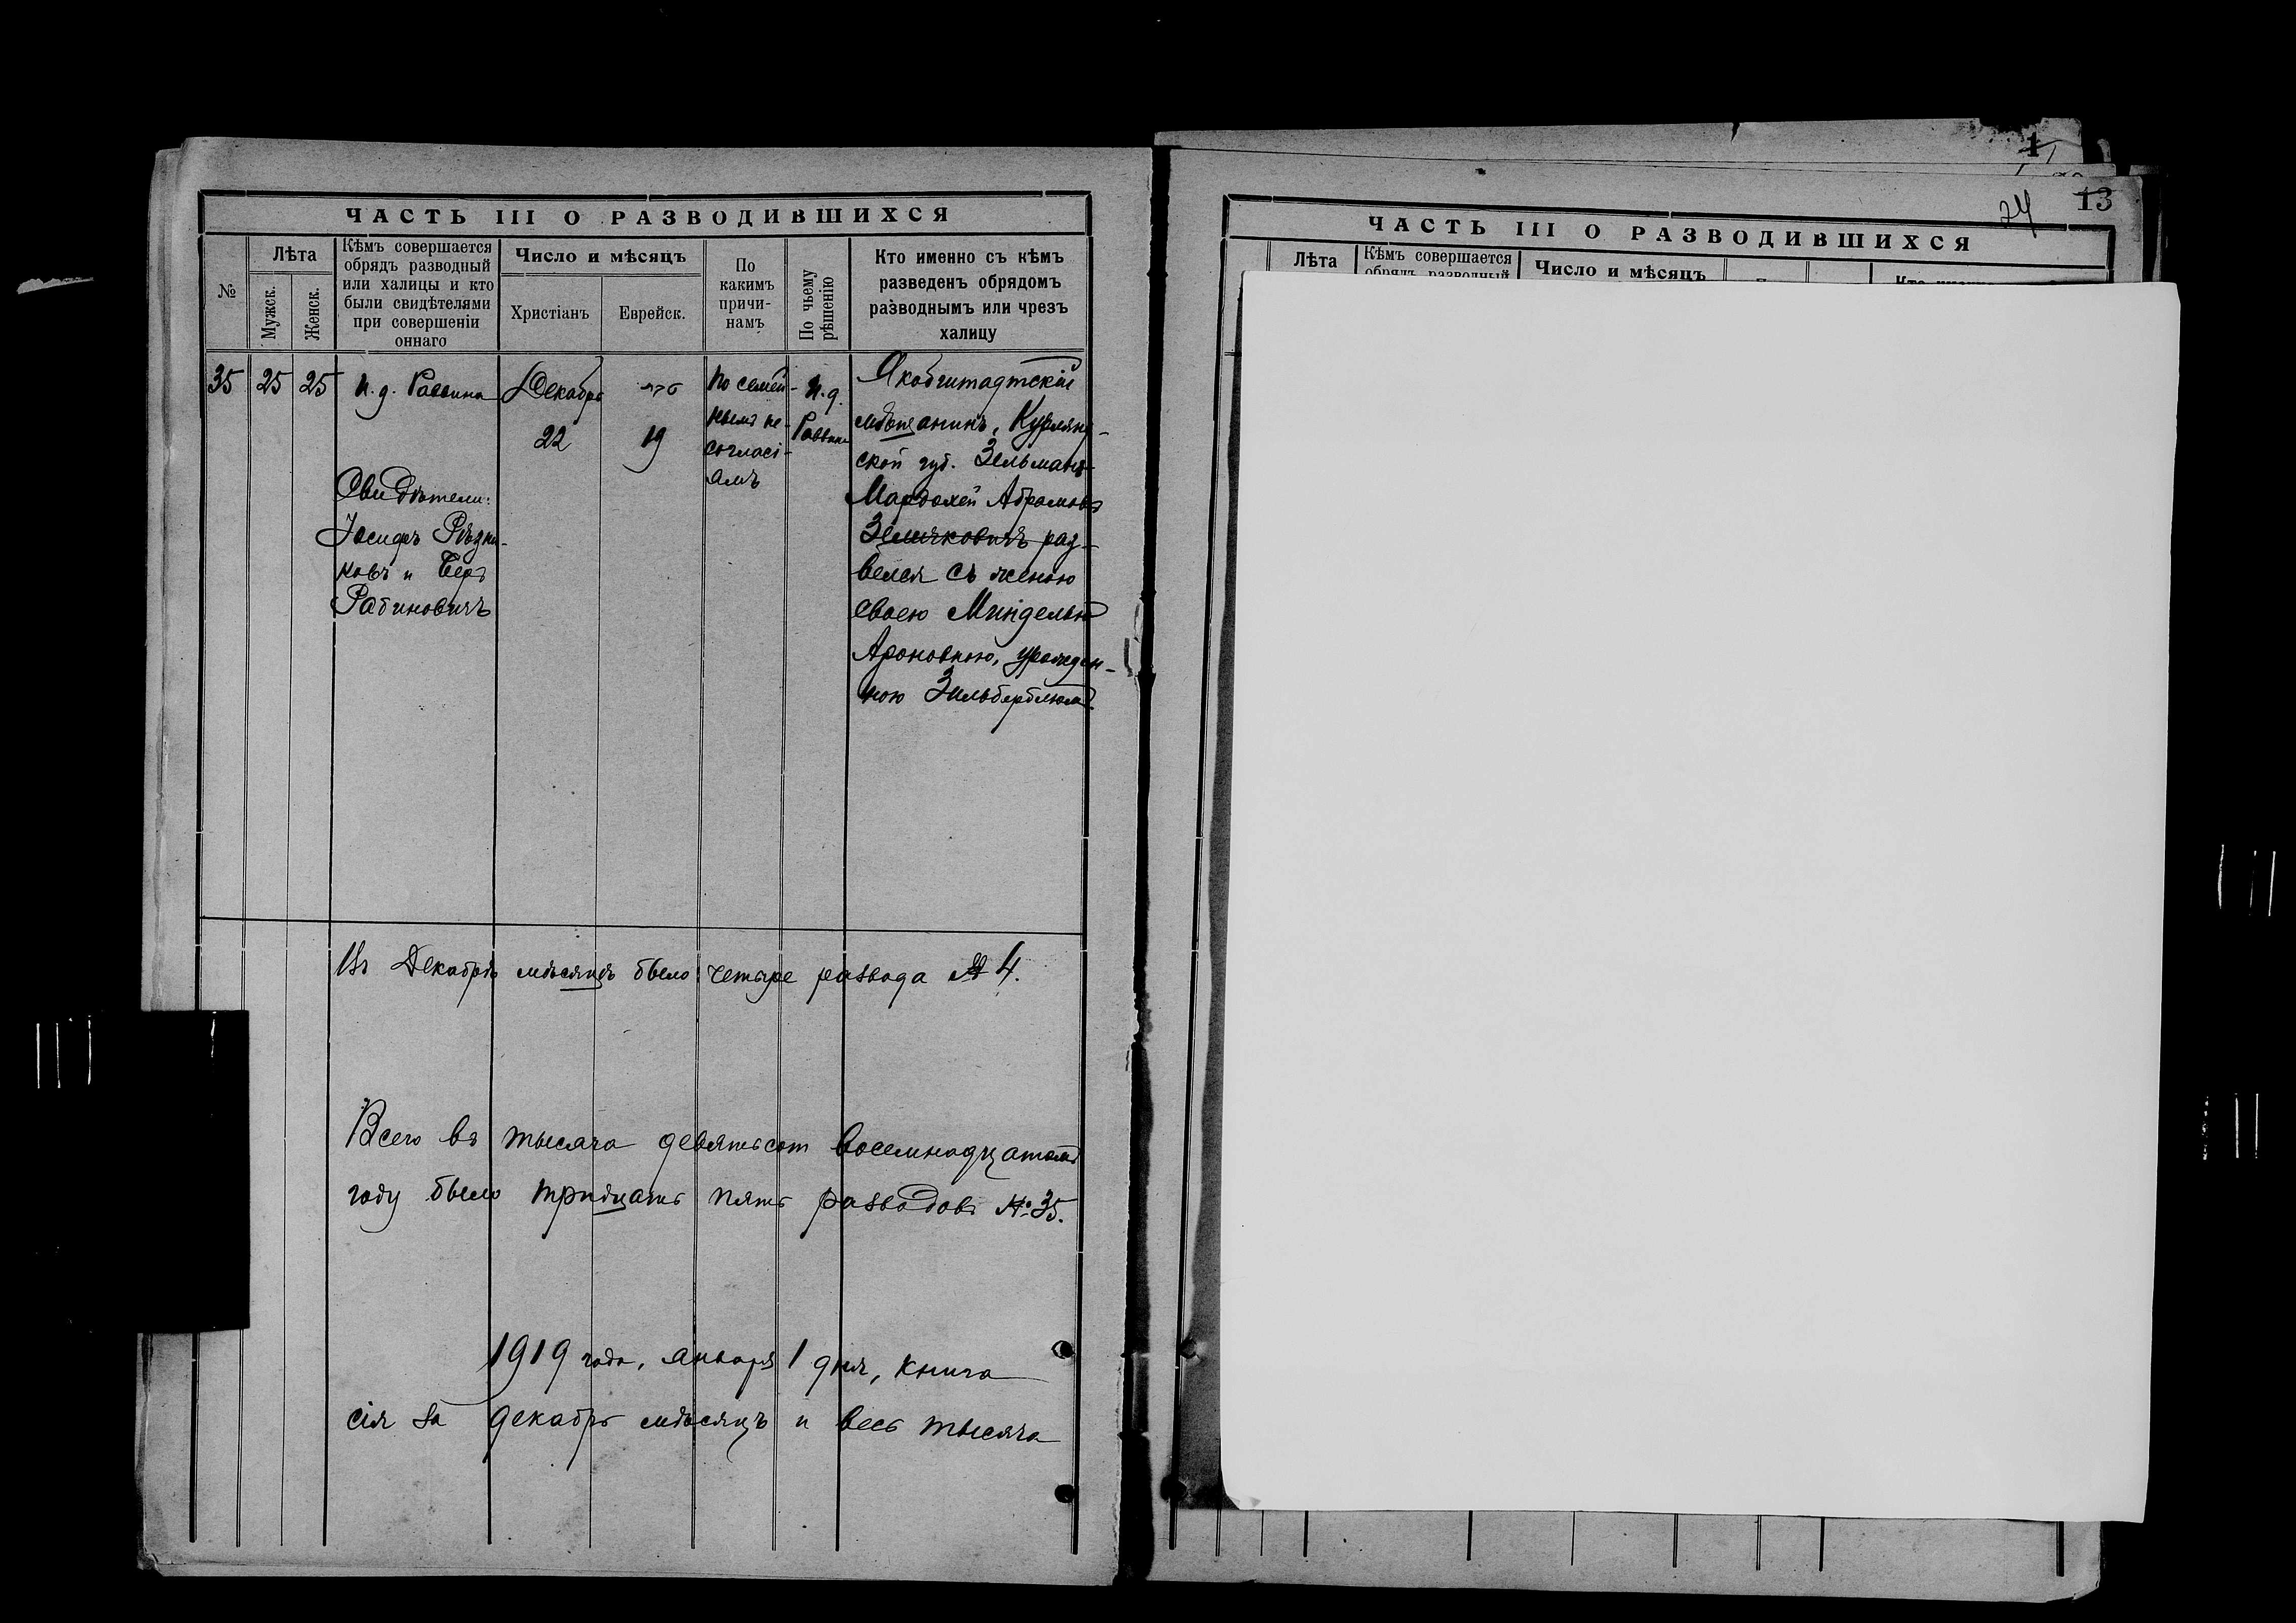 ЧАСТЬ III О РАЗВОДИВШИХСЯ
№
Лѣта
Мужск.
Женск.
Кѣмъ совершается
обрядъ разводный
или халицы и кто
были свидѣтелями
при совершеніи
оннаго
Число и мѣсяцъ
Христіанъ
Еврейск.
По
какимъ
причи-
намъ
По чьему
рѣшенію
Кто именно съ кѣмъ
разведенъ обрядомъ
разводнымъ или чрезъ
халицу
35
25
25
И. д. Раввина
Свидѣтели:
Іосифъ Рѣзни-
ковъ и Беръ
Рабиновичъ
Декабрь
22
19
По семей-
нымъ не-
согласі-
ямъ
И. д.
Раввина
Якобштадтскій
мѣщанинъ, Курлянд-
ской губ. Зельманъ-
Мардохей Абрамовъ
раз-
велся съ женою
своею Минделью
Ароновною, урожден-
ною Зильберблюмъ.
Въ Декабрѣ мѣсяцѣ было четыре развода № 4.
Всего въ тысяча девятьсот восемнадцатомъ
году было тридцать пять разводовъ № 35.
1919 года, января 1 дня, книга
сія за декабрь мѣсяцъ и весь тысяча
1
24
13
ЧАСТЬ III О РАЗВОДИВШИХСЯ
Лѣта
Кѣмъ совершается
обрядъ разводный
Число и мѣсяцъ